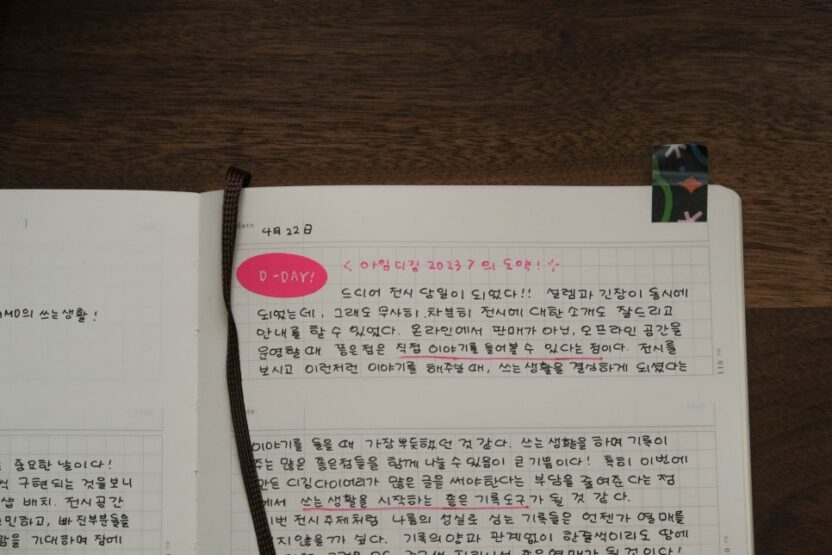 MD의 쓰는생활!
중요한 날이다!
구현되는 것을보니
배치. 전시공간
빠진부분들을
기대하며 잠에
Date 4月 22日
D-DAY!
<아임디깅 2023>의 도약!
드디어 전시 당일이 되었다!! 설렘과 긴장이 동시에
되었는데, 그래도 무사히 차분히 전시에 대한 소개도 잘드리고
안내를 할 수 있었다. 온라인에서 판매가 아닌, 오프라인 공간을
운영할 때 좋은점은 직접 이야기를 들어볼 수 있다는 점이다. 전시를
보시고 이런저런 이야기를 해주실 때, 쓰는생활을 결심하게 되셨다는
110
이야기를 들을 때 가장 뿌듯했던 것 같다. 쓰는 생활을 하며 기록이
주는 많은 좋은점들을 함께 나눌 수 있음이 큰 기쁨이다! 특히 이번에
만든 디깅다이어리가 많은 글을 써야한다는 부담을 줄여준다는 점
에서 쓰는 생활을 시작하는 좋은 기록도구가 될 것 같다.
이번 전시주제처럼 나름의 성실로 심는 기록들은 언젠가 열매를
맺지않을까 싶다. 기록의양과 관계없이 한줄씩이라도 땅에